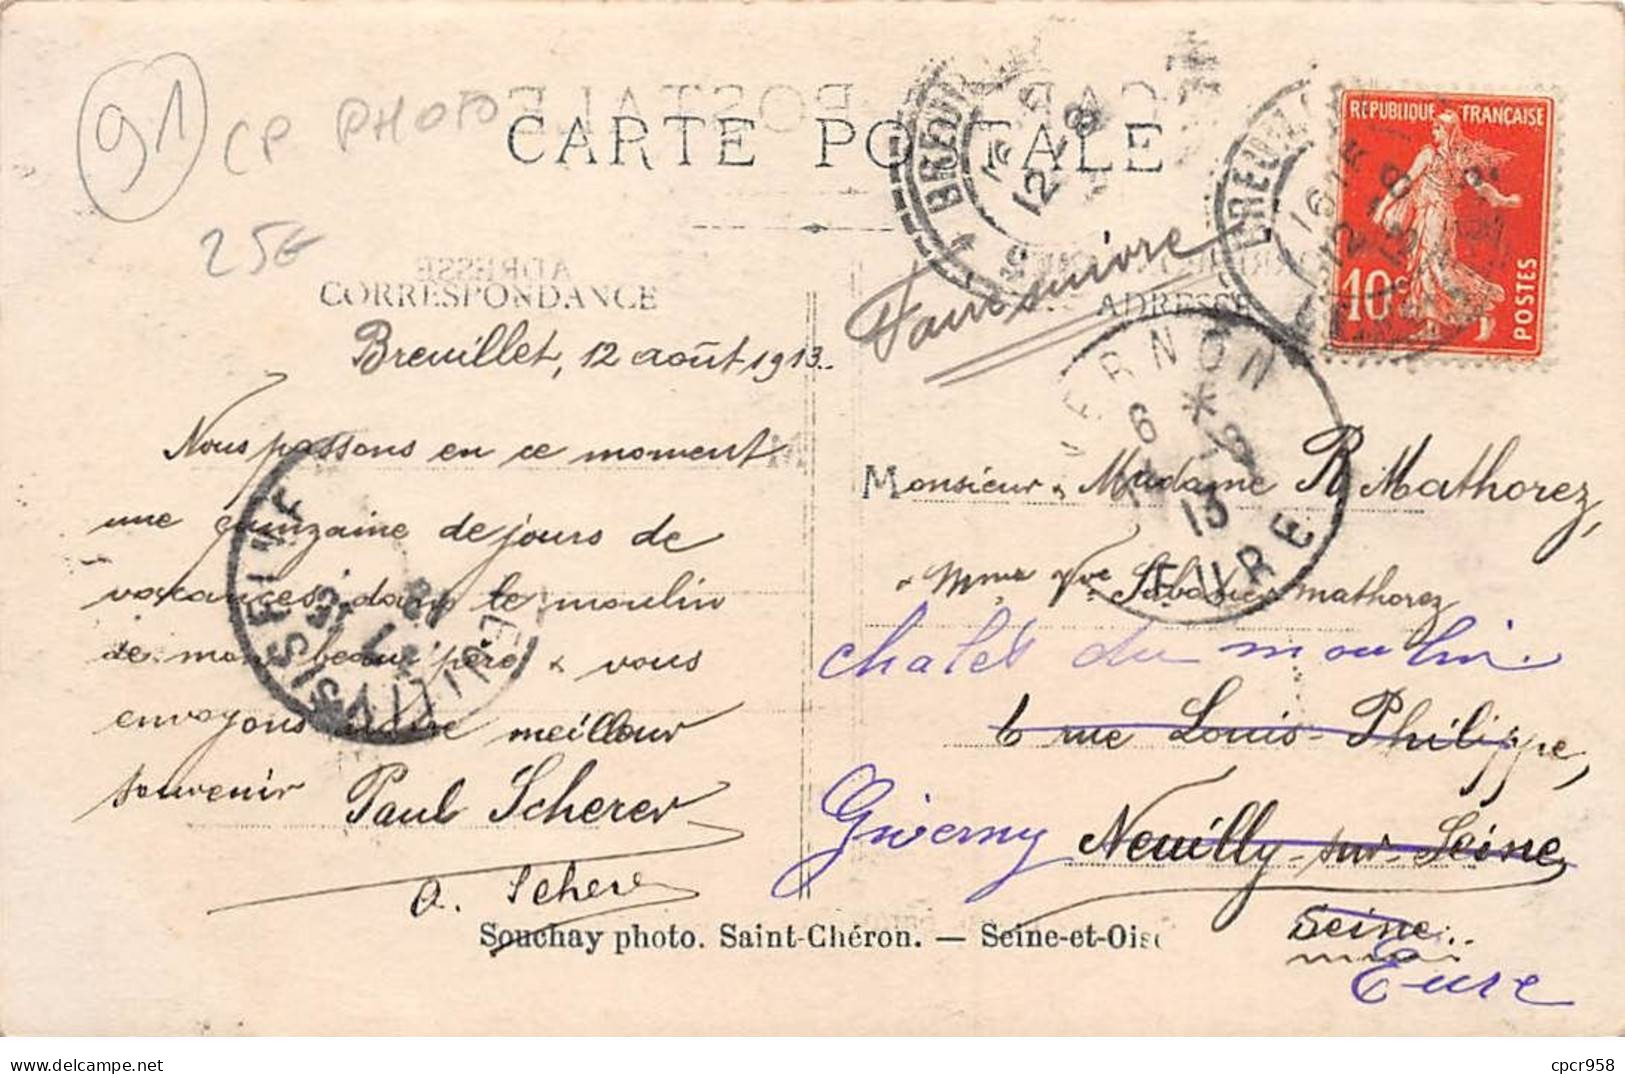 91
CP PHOTO
25€
CARTE POSTALE
CORRESPONDANCE
ADRESSE
RÉPUBLIQUE FRANÇAISE
10c
POSTES
BREUILLET
16
12 - 8
BREUILLET
16
12 - 8
13
Faire suivre
VERNON
6
8
13
EURE
Breuillet, 12 août 1913.
Nous passons en ce moment
une quinzaine de jours de
vacances dans le moulin
de mon beau père & vous
envoyons notre meilleur
souvenir Paul Scherer
a. Scherer
NEUILLY S SEINE
Monsieur & Madame R. Mathorez,
& Mme Vve Mathorez
chalet du moulin
6 rue Louis-Philippe,
Giverny Neuilly-sur-Seine
Seine
Eure
Souchay photo. Saint-Chéron. — Seine-et-Oise
delcampe.net
cpcr958